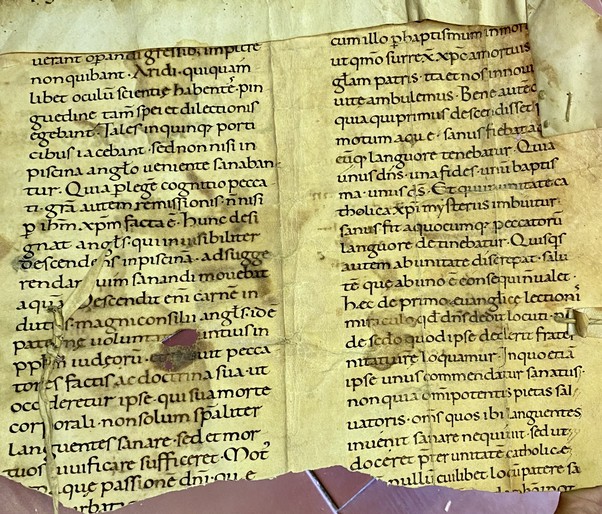 uerant op andi gressib; impure
non quibant · Aridi · qui quam
libet oculũ scientię habentes · pin
guedine tam̃ spei et dilectionis
egebant · Tales in quinq; porti
cibus iacebant · sed non nisi in
piscina anglo ueniente sanaban
tur · Quia p lege cognitio pecca
ti · gra autem remissionis ñ nisi
p ihm · xpm facta ẽ · hunc desi
gnat angls · qui inuisibiliter
descendens in piscina · ad sugge
rendam uim sanandi mouebat
aqua Descendit eni carnẽ in
dutus · magni consilii angls · ide
patr ne uolunt intus in
pplm iudeorũ · et uit pecca
tores factis ac doctrina sua · ut
occideretur ipse · qui sua morte
corporali · non solum spaliter
languentes sanare · sed et mor
tuos uiuificare sufficeret · Mot
que passione dni · qu e
cum illo p baptismum in mor
ut qmo surrex̃ xpc a mortuis
glam patris · ita et nos in noui
uite ambulemus · Bene autem
quia qui primus descendisset
motum aque · sanus fiebat a
cuq; languore tenebatur · Quia
unus dns · una fides · unũ baptis
ma · unus ds̃ · Et qui in unitate ca
tholica xpi mysteriis imbuitur
sanus fit a quocumq; peccatorũ
languore detinebatur · Quisqs
autem ab unitate discrepat · salu
tẽ que ab uno ẽ consequi ñ ualet ·
hęc de primo euangelice lectioni
miraculo qd dñs dedit locuti ·
de sedo quod ipse dederit frater
nitati ure loquamur · In quo etiã
ipse unus commendatur sanatus ·
non quia omipotentis pietas sal
uatoris · oms quos ibi languentes
inuenit sanare nequiuit · sed ut
doceret p̃ter unitate catholicę
nullũ cuilibet locũ patere sa